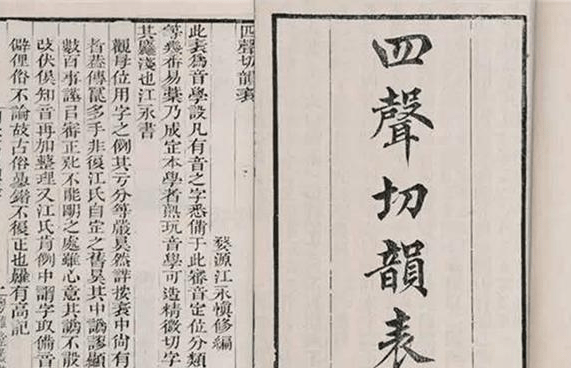 四聲切韻表
四聲切韻表
婺源江永慎修編
此表爲音學設凡有音之字悉備于此審音定位分類
等幾番易藁乃成定本學者熟玩音學可造精微切字
其麤淺也江永書
觀母位用字之例其分等嚴具然按表中尚有
者葢傳多手非復江氏自定之舊其中譌謬顯
數百事謹審正不能之處雖心意其譌不敢
改伏俟知音再加整理又江氏例中謂字取備音
僻俚俗不論故古俗錯不復正也羅有高記